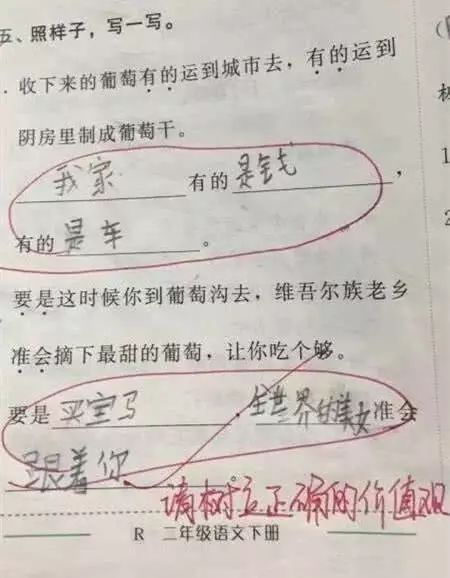 五、照样子，写一写。
. 收下来的葡萄有的运到城市去，有的运到
阴房里制成葡萄干。
我家有的是钱，
有的是车。
要是这时候你到葡萄沟去，维吾尔族老乡
准会摘下最甜的葡萄，让你吃个够。
要是买宝马，全世界的美女准会
跟着你。
请树立正确的价值观
R 二年级语文下册
1
2